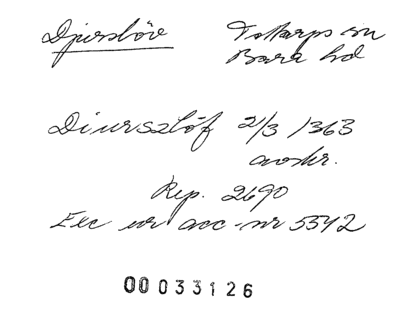 Djurslöv Tottarps sn
Bara hd
Diurszlöf 2/3 1363
avskr.
Rep. 2690
Exc ur acc-nr 5542
00033126